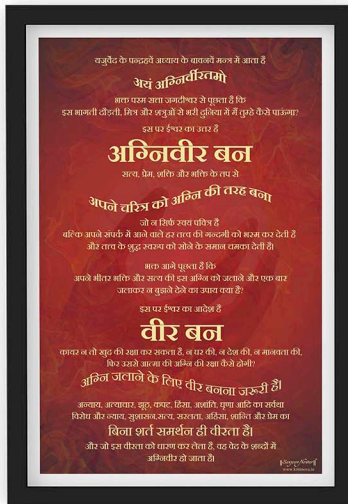 यजुर्वेद के पन्द्रहवें अध्याय के बावनवें मन्त्र में आता है
अयं अग्निर्वीरतमो
भक्त परम सत्ता जगदीश्वर से पूछता है कि
इस भागती दौड़ती, मित्र और शत्रुओं से भरी दुनिया में मैं तुम्हे कैसे पाऊंगा?
इस पर ईश्वर का उत्तर है
अग्निवीर बन
सत्य, प्रेम, शक्ति और भक्ति के तप से
अपने चरित्र को अग्नि की तरह बना
जो न सिर्फ स्वयं पवित्र है
बल्कि अपने संपर्क में आने वाले हर तत्व की गन्दगी को भस्म कर देती है
और तत्व के शुद्ध स्वरुप को सोने के समान चमका देती है।
भक्त आगे पूछता है कि
अपने भीतर भक्ति और सत्य की इस अग्नि को जलाने और एक बार
जलाकर न बुझने देने का उपाय क्या है?
इस पर ईश्वर का आदेश है
वीर बन
कायर न तो खुद की रक्षा कर सकता है, न घर की, न देश की, न मानवता की,
फिर उससे आत्मा की अग्नि की रक्षा कैसे होगी?
अग्नि जलाने के लिए वीर बनना जरूरी है।
अन्याय, अत्याचार, झूठ, कपट, हिंसा, अशांति, घृणा आदि का सर्वथा
विरोध और न्याय, सुशासन, सत्य, सरलता, अहिंसा, शान्ति और प्रेम का
बिना शर्त समर्थन ही वीरता है।
और जो इस वीरता को धारण कर लेता है, वह वेद के शब्दों में
अग्निवीर हो जाता है।